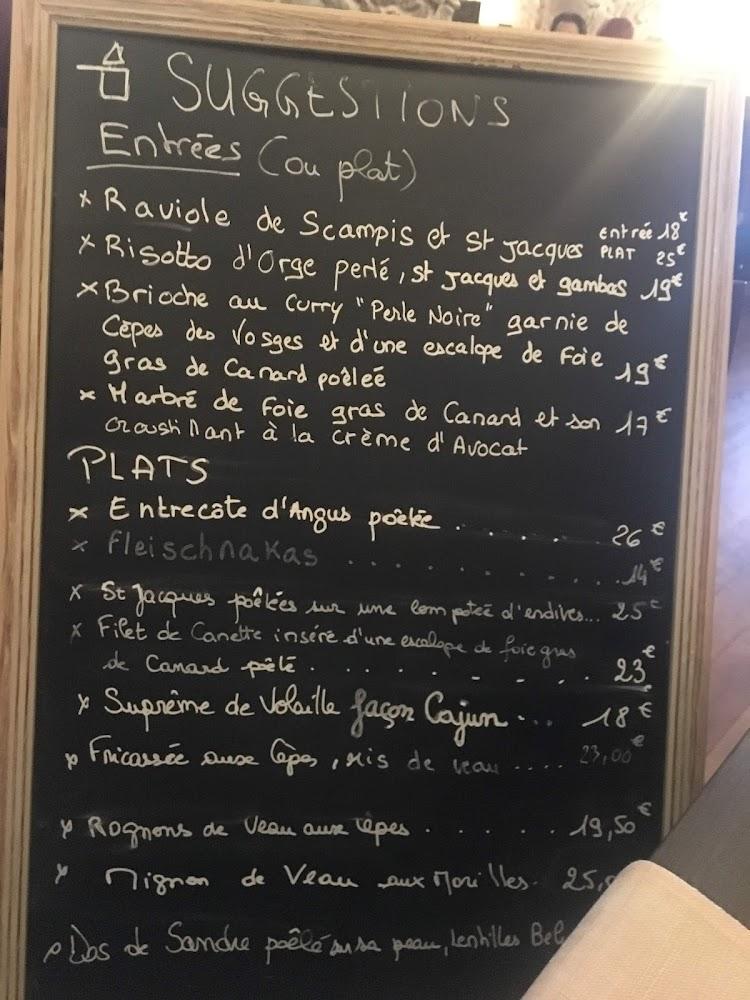 SUGGESTIONS
Entrées (ou plat)
x Raviole de Scampis et St Jacques Entrée 18€
PLAT 25€
x Risotto d'Orge perlé, St Jacques et gambas 19€
x Brioche au Curry "Perle Noire" garnie de
Cèpes des Vosges et d'une escalope de Foie
gras de Canard poêleé 19€
x Marbré de Foie gras de Canard et son 17€
croustillant à la crème d'Avocat
PLATS
x Entrecôte d'Angus poêlée . . . . . . 26€
x fleischnakas . . . . . . . . . . . 14€
x St Jacques poêlées sur une compoteé d'endives... 25€
x Filet de Canette inséré d'une escalope de foie gras
de Canard pêlé . . . . . . . . 23€
x Suprême de Volaille façon Cajun ... 18€
x Fricassée aux Cèpes, Ris de veau .... 23,00€
x Rognons de Veau aux Cèpes . . . . . 19,50€
x Mignon de Veau aux Morilles. 25,
x Dos de Sandre poêlé sur sa peau, lentilles Bel